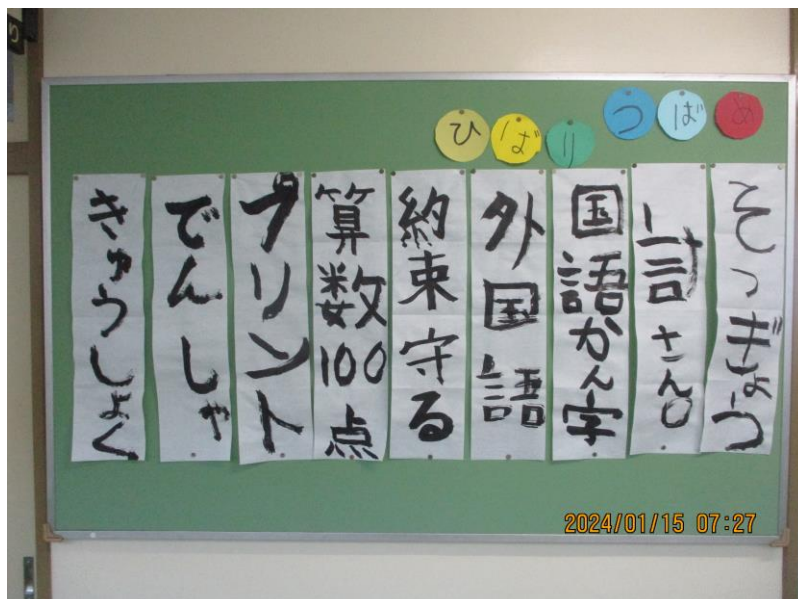 ひばり
つばめ
そつぎょう
計さん
国語かん字
外国語
約束守る
算数100点
プリント
でんしゃ
きゅうしょく
2024/01/15 07:27